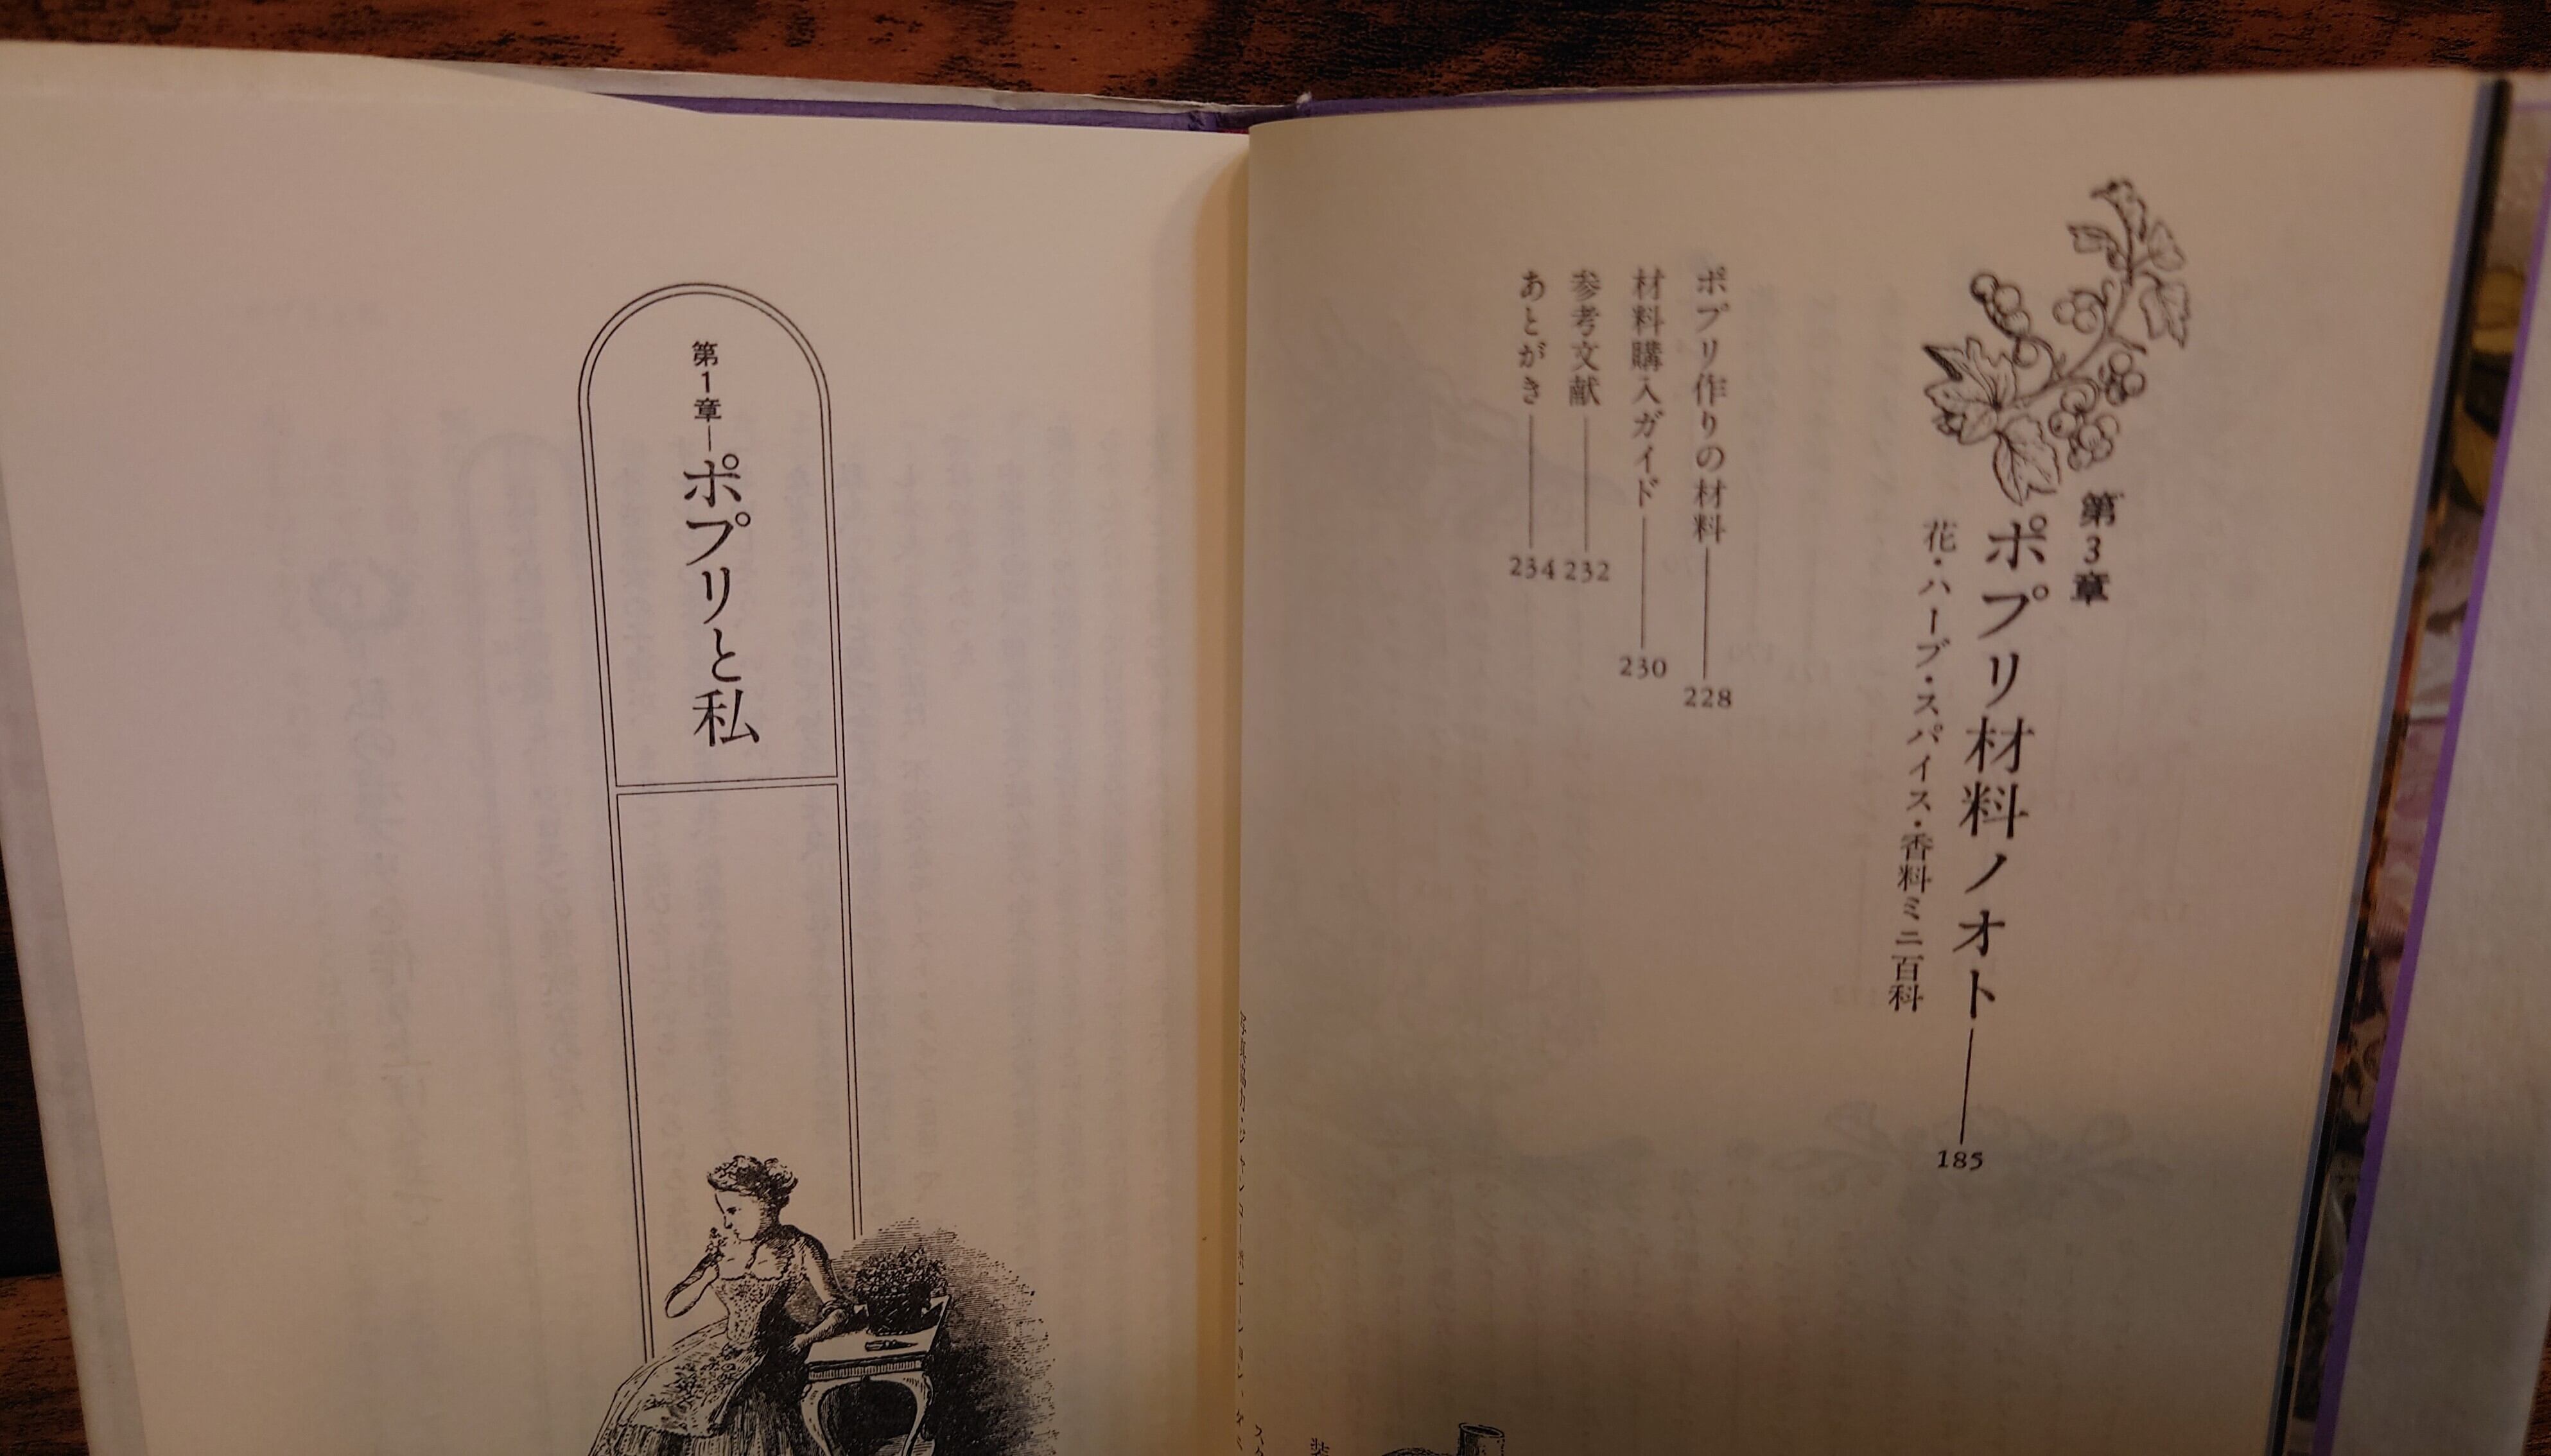 第3章
ポプリ材料ノオト——185
花・ハーブ・スパイス・香料ミニ百科
ポプリ作りの材料——228
材料購入ガイド——230
参考文献——232
あとがき——234
第1章—ポプリと私